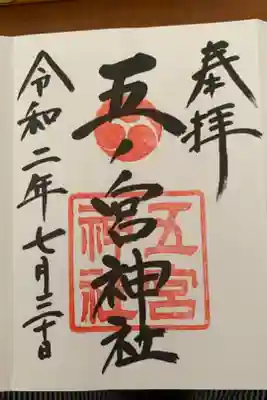 奉拝
五ノ宮神社
五宮
神社
令和二年七月二十日